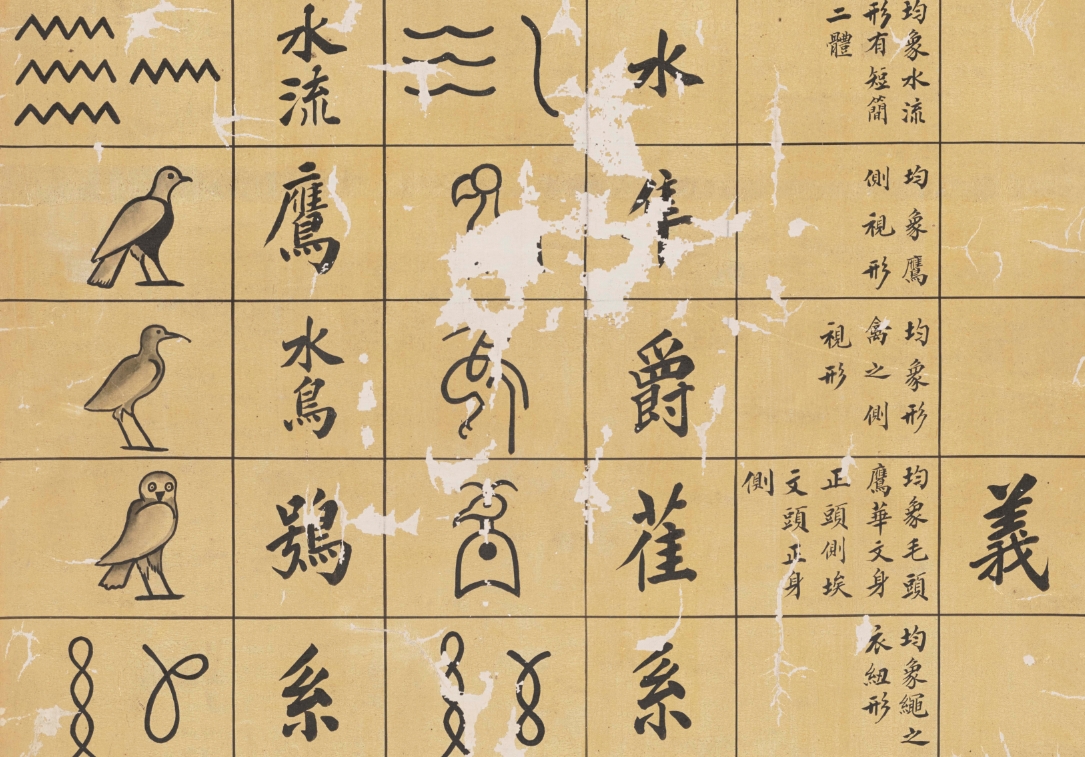 水流
水
均象水流
形有短簡
二體
鷹
隹
均象鷹
側視形
水鳥
爵
均象形
禽之側
視形
鴞
萑
均象毛頭
鷹華文身
正頭側埃
文頭正身
側
義
系
系
均象繩之
衣紐形